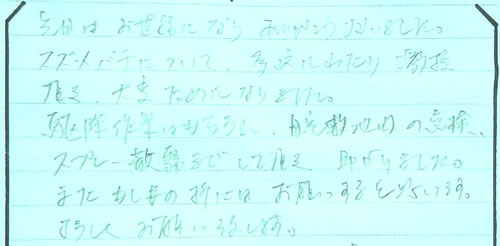 先日はお世話になりありがとうございました。
スズメバチについて、多岐にわたりご教授
頂き、大変ためになりました。
駆除作業はもちろん、自宅敷地内の点検、
スプレー散霧までして頂き 助かりました。
またもしその折にはお願いすると思います。
よろしくお願い致します。